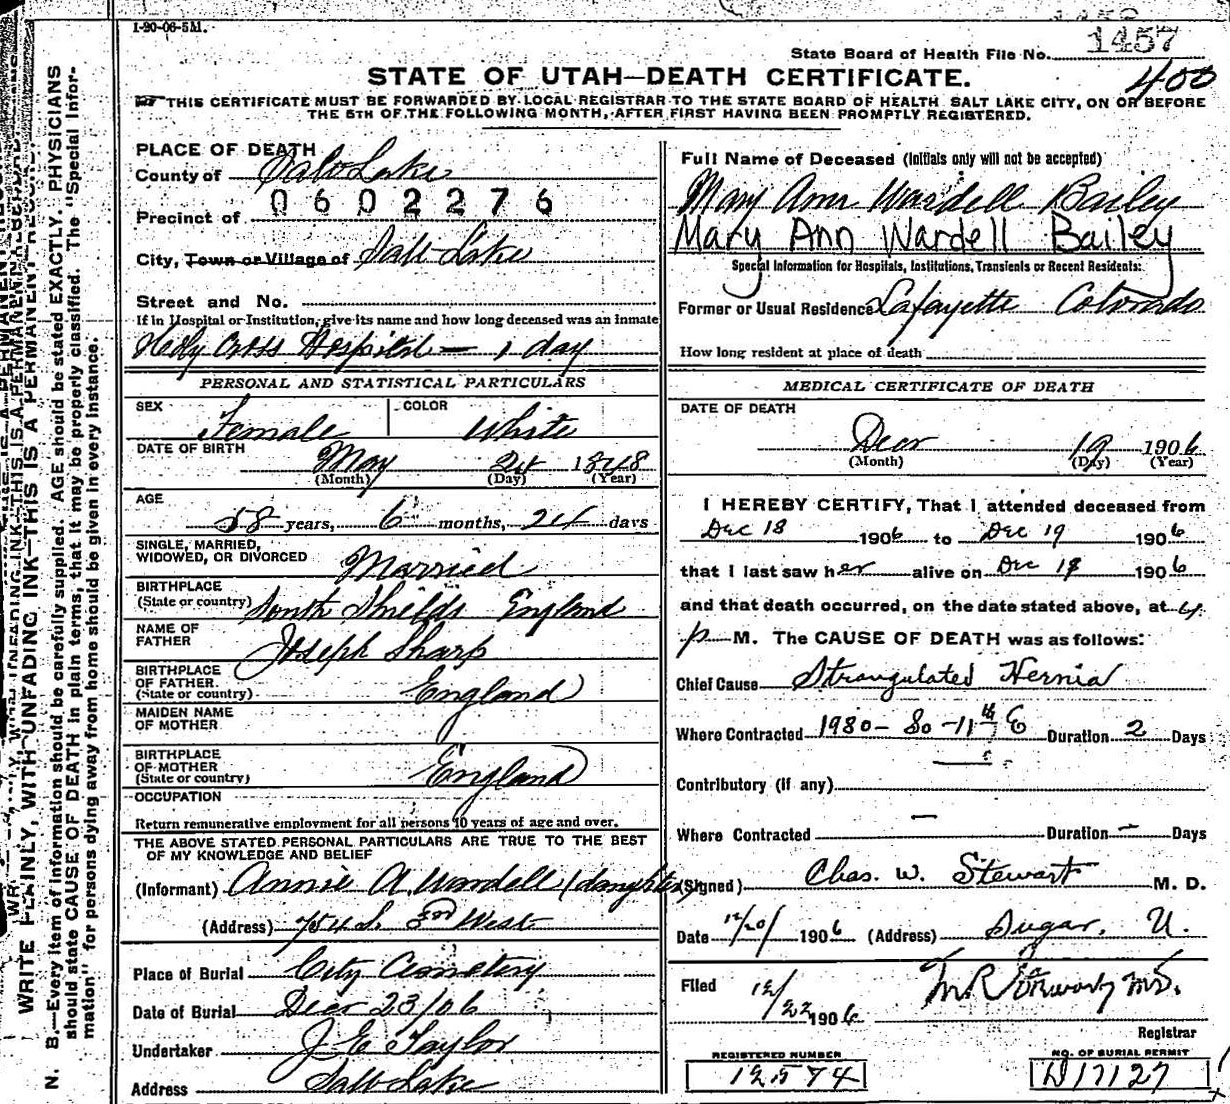 1-20-06-5M.
1457
State Board of Health File No.
400
STATE OF UTAH—DEATH CERTIFICATE.
THIS CERTIFICATE MUST BE FORWARDED BY LOCAL REGISTRAR TO THE STATE BOARD OF HEALTH SALT LAKE CITY, ON OR BEFORE
THE 5TH OF THE FOLLOWING MONTH, AFTER FIRST HAVING BEEN PROMPTLY REGISTERED.
WRITE PLAINLY, WITH UNFADING INK—THIS IS A PERMANENT RECORD.
N. B.—Every item of information should be carefully supplied. AGE should be stated EXACTLY. PHYSICIANS
should state CAUSE OF DEATH in plain terms, that it may be properly classified. The "Special Infor-
mation" for persons dying away from home should be given in every instance.
PLACE OF DEATH
County of Salt Lake
0602276
Precinct of
City, Town or Village of Salt Lake
Street and No.
If in Hospital or Institution, give its name and how long deceased was an inmate
Holy Cross Hospital — 1 day
PERSONAL AND STATISTICAL PARTICULARS
SEX Female COLOR White
DATE OF BIRTH May 24 1848
(Month) (Day) (Year)
AGE 58 years, 6 months, 24 days
SINGLE, MARRIED,
WIDOWED, OR DIVORCED Married
BIRTHPLACE
(State or country) South Shields England
NAME OF
FATHER Joseph Sharp
BIRTHPLACE
OF FATHER
(State or country) England
MAIDEN NAME
OF MOTHER
BIRTHPLACE
OF MOTHER
(State or country) England
OCCUPATION
Return remunerative employment for all persons 10 years of age and over.
THE ABOVE STATED PERSONAL PARTICULARS ARE TRUE TO THE BEST
OF MY KNOWLEDGE AND BELIEF
(Informant) Annie A. Wardell (daughter)
(Address) 754 S. 3rd West
Place of Burial City Cemetery
Date of Burial Decr 23/06
Undertaker J. E. Taylor
Address Salt Lake
Full Name of Deceased (Initials only will not be accepted)
Mary Ann Wardell Bailey
Mary Ann Wardell Bailey
Special Information for Hospitals, Institutions, Transients or Recent Residents:
Former or Usual Residence Lafayette Colorado
How long resident at place of death
MEDICAL CERTIFICATE OF DEATH
DATE OF DEATH
Decr 19 1906
(Month) (Day) (Year)
I HEREBY CERTIFY, That I attended deceased from
Dec 18 1906 to Dec 19 1906
that I last saw her alive on Dec 19 1906
and that death occurred, on the date stated above, at 4
p M. The CAUSE OF DEATH was as follows:
Chief Cause Strangulated Hernia
Where Contracted 1980 - So - 11th E Duration 2 Days
Contributory (if any)
Where Contracted — Duration — Days
(Signed) Chas. W. Stewart M. D.
Date 12/20/ 1906 (Address) Sugar, U.
Filed 12/22 1906 M.D.
Registrar
REGISTERED NUMBER
12574
NO. OF BURIAL PERMIT
D17127